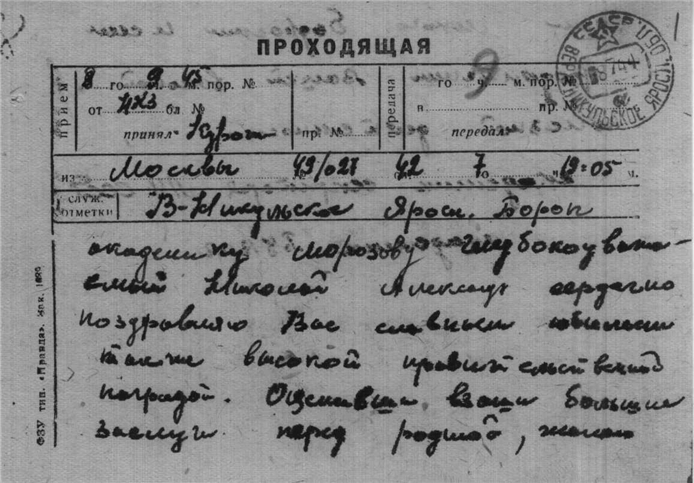 ПРОХОДЯЩАЯ
прием
8 го 9 ч. 45 м. пор. №
от бл. №
принял
пр. №
передача
9
го ч. м. пор. №
в пр. №
передал
из Москвы 49/027 42 7 го 19=05 ч.
служ. отметки
В-Никульское Яросл. Борок
академику Морозову глубокоуважа-
емый Николай Александр сердечно
поздравляю Вас славным юбилеем
также высокой правительственной
наградой. ваши большие
заслуги перед родиной, желаю
ФЗУ тип. «Правда». Зак. 1889